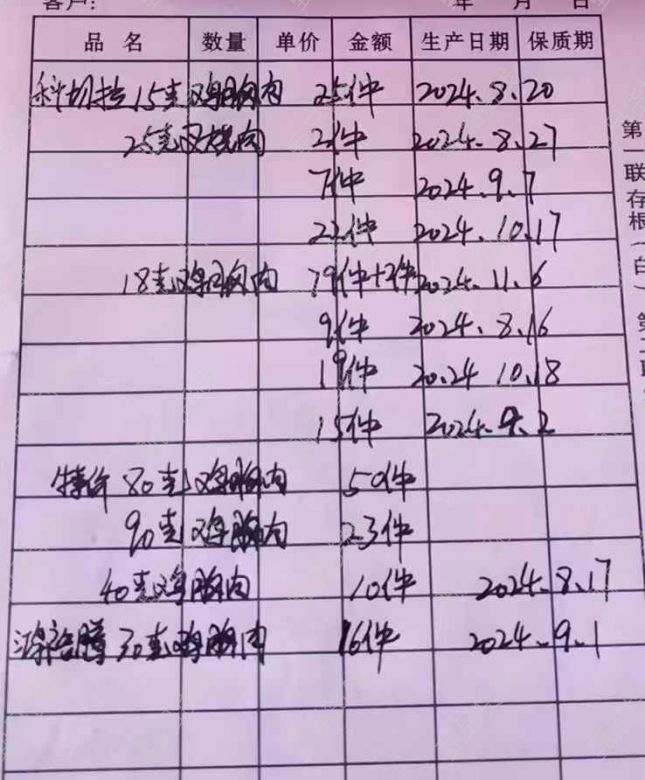 客户： 年 月 日
品名 数量 单价 金额 生产日期 保质期
科切拉 15克鸡胸肉 25件 2024.8.20
25克叉烧肉 2件 2024.8.27
7件 2024.9.7
22件 2024.10.17
18克鸡胸肉 79件+2件 2024.11.6
9件 2024.8.16
19件 2024 10.18
15件 2024.9.2
特价 80克鸡胸肉 50件
90克鸡胸肉 23件
40克鸡胸肉 10件 2024.8.17
鸿裕腾 30克鸡胸肉 16件 2024.9.1
第一联存根（白）第二联